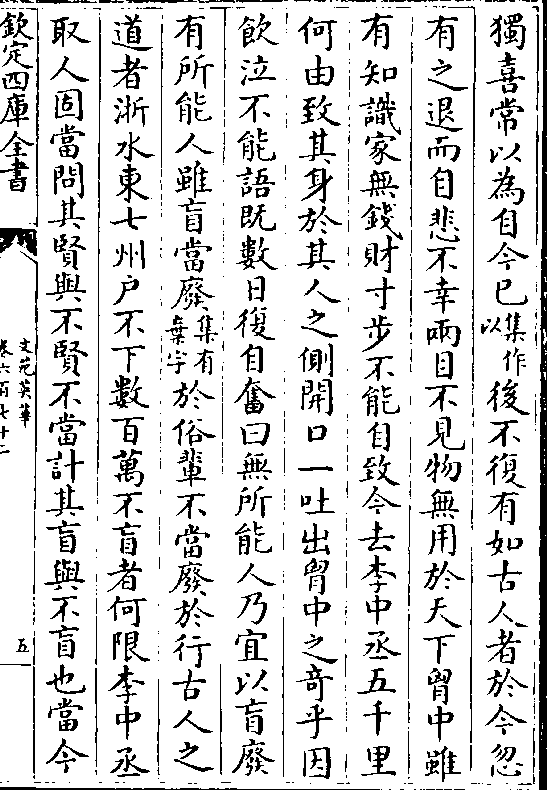 獨喜常以為自今已集作以後不復有如古人者於今忽
有之退而自悲不幸兩目不見物無用於天下胷中雖
有知識家無錢財寸步不能自致今去李中丞五千里
何由致其身於其人之側開口一吐出胷中之奇乎因
飲泣不能語既數日復自奮曰無所能人乃宜以盲廢
有所能人雖盲當廢集有棄字於俗輩不當廢於行古人之
道者浙水東七州户不下數百萬不盲者何限李中丞
取人固當問其賢與不賢不當計其盲與不盲也當今
欽定四庫全書
文苑英華
卷六百七十二
五